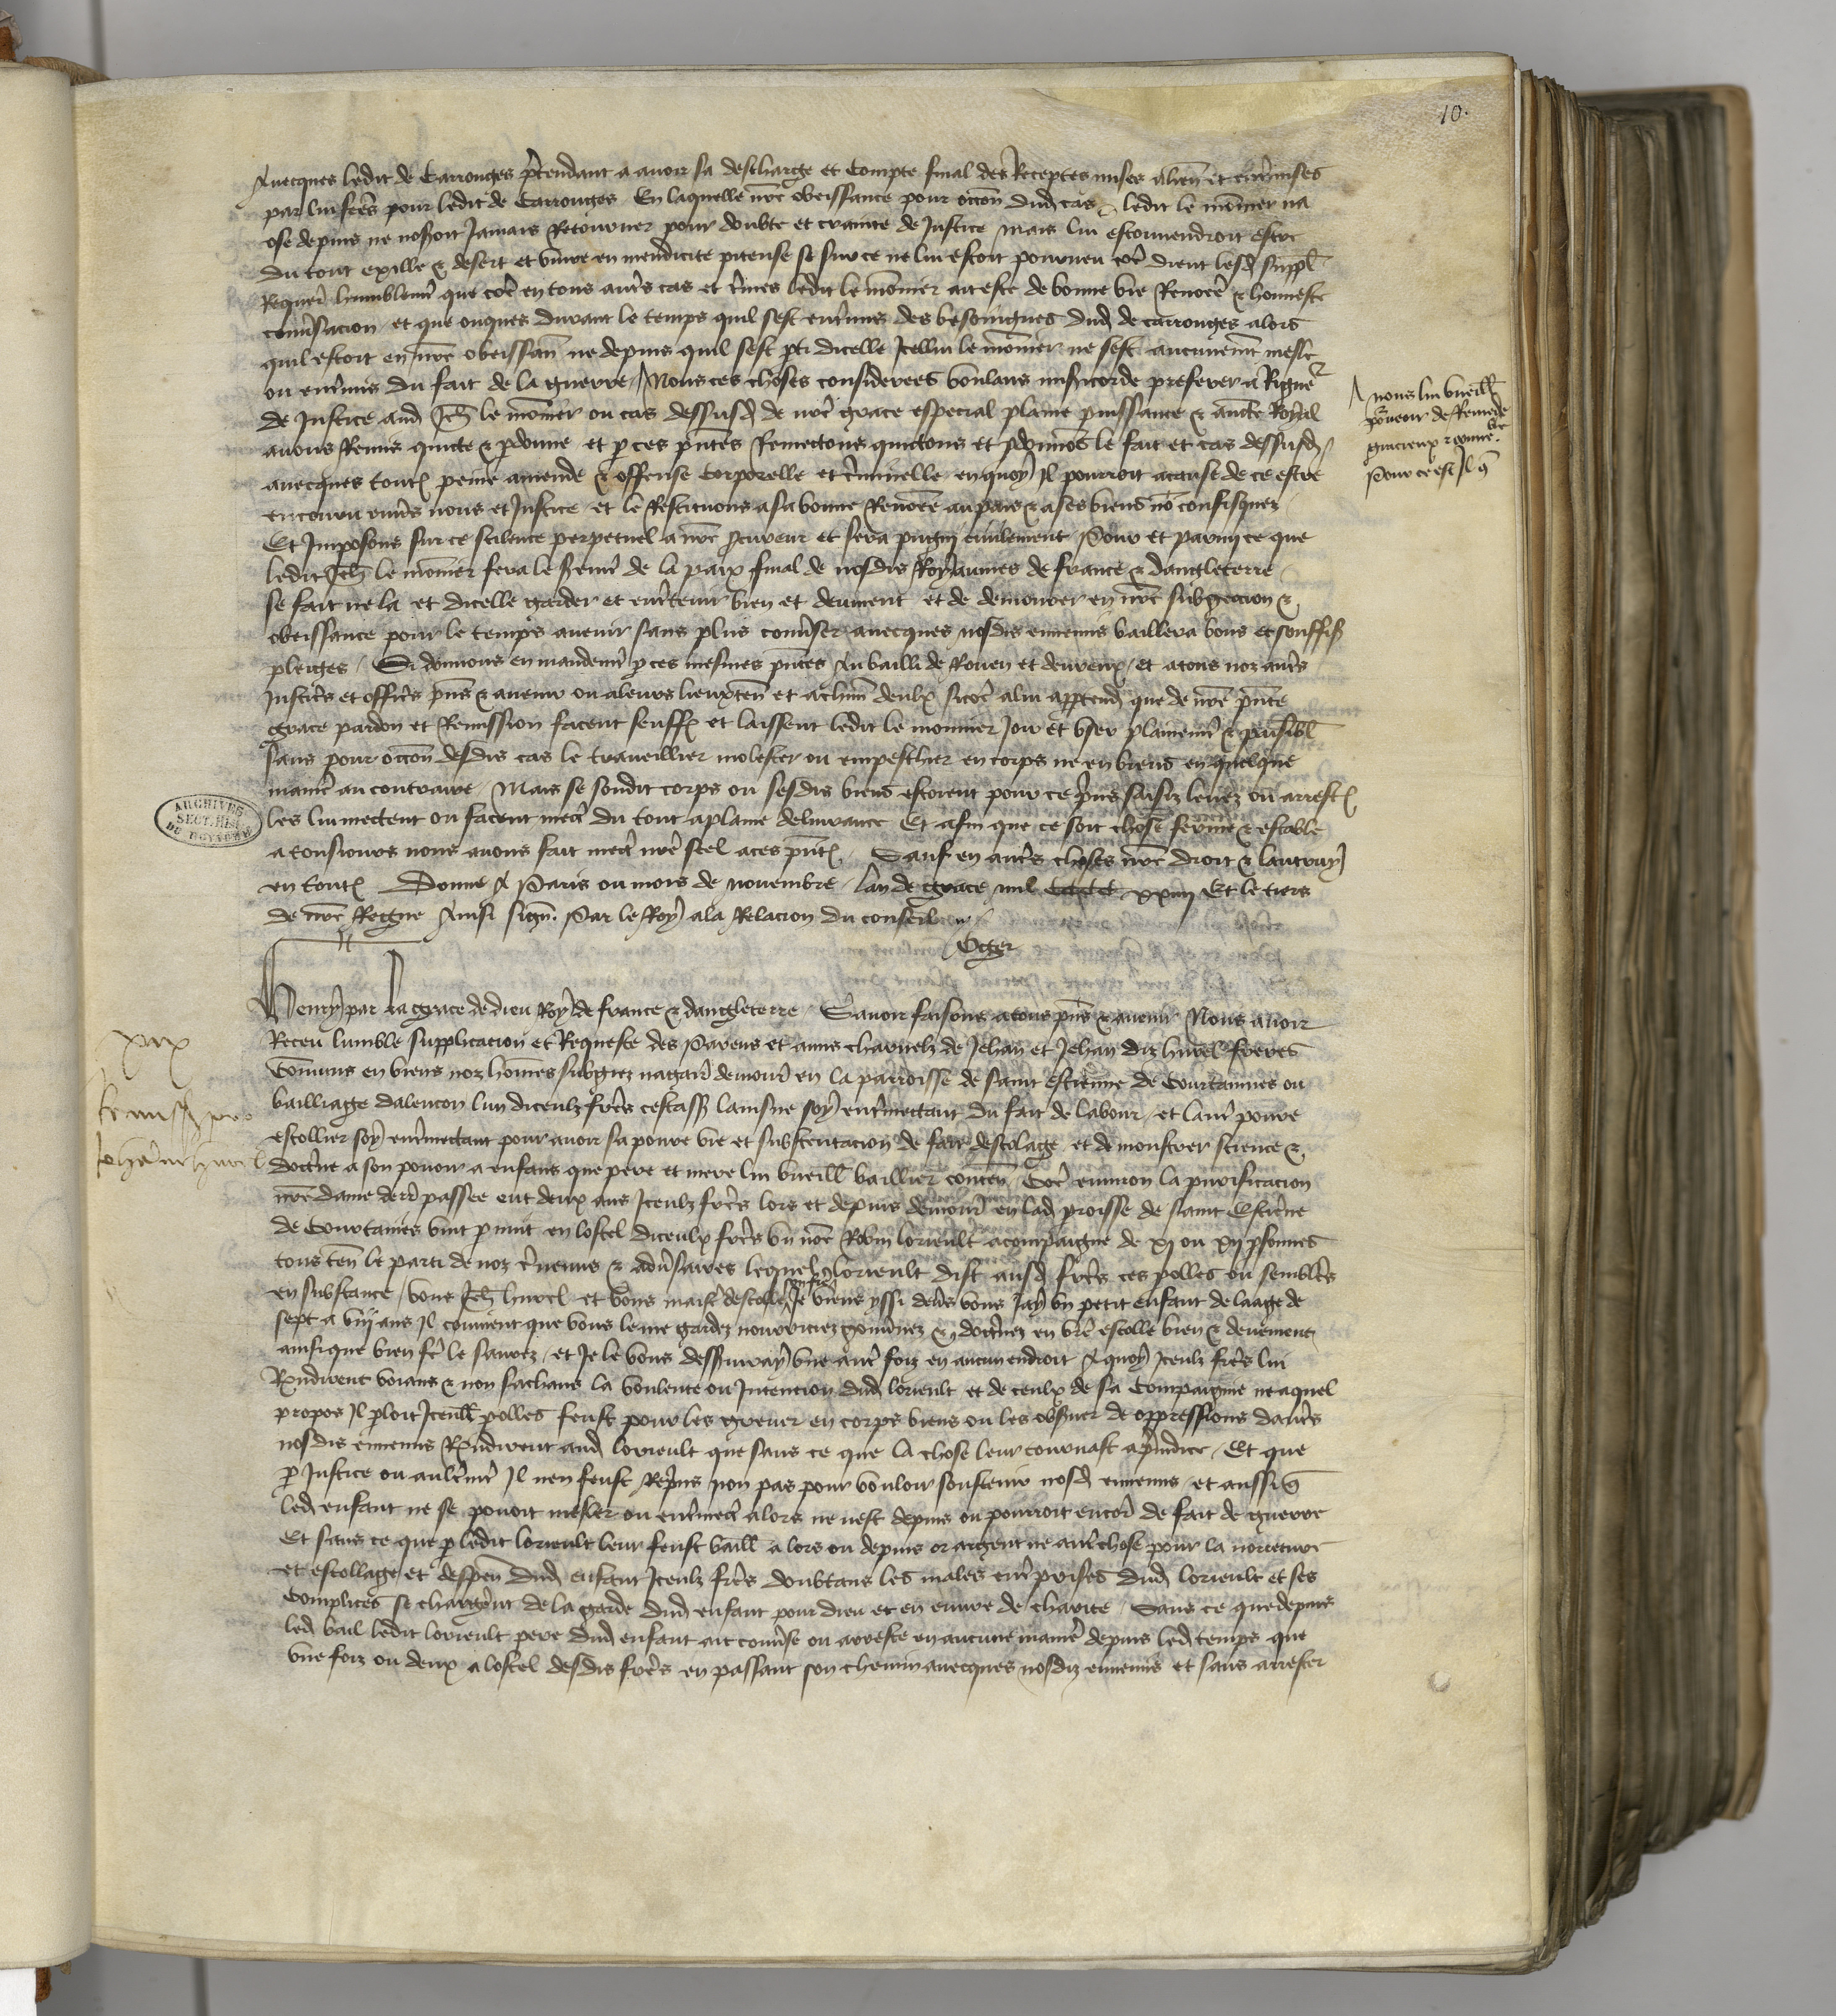 10.
Avecques ledit de Carrouges p̃tendant a avoir sa descharge et compte final des Receptes mises et
par lui fc̃es pour ledit de Carrouges En laquelle nr̃e obeissance pour occõn dud cas ledit le mõnier na
ose depuis ne noseroit Jamais Retourner pour doubte et crainte de Justice Mais lui escouvendroit estre
du tout exille & desert et vivre en mendicite piteuse se sur ce ne lui estoit pourveu cõe dient lesd suppl̃
Requer̃ humblem̃t que cõe en tous aut̃s cas et c̃mes ledit le mõnier ait este de bonne vie Renom̃ee & honneste
conṽsacion et que onques durant le temps quil sest ent̃mis des besoingnes dud de carrouges alors
quil estoit en nr̃e obeissañ ne depuis quil sest pti dicelle Icellui le mõnier ne sest aucunem̃t mesle
ou ent̃mis du fait de la guerre / Nous ces choses considerees voulans mis̃icorde preferer a Rigueʳ
de Justice aud Jeh̃ le mõnier ou cas dessusd de nr̃e grace especial plaine puissance & auct̃e Royal
avons Remis quicte & pdonne et p ces p̃ntes Remectons quictons et pdonnõs le fait et cas dessusd
avecques tout peine amende & offense corporelle et c̃minelle en quoy Il pourroit a cause de ce estre
encouru enṽs nous et Justice et le Restituons a sa bonne Renom̃ee au pais & a ses biens nõ confisquez
Et Imposons sur ce scilence perpetuel a nr̃e pcureur et sera pugny civilement Pour et parmy ce que
ledit Jeh̃ le mõnier fera le serem̃t de la paix final de nosdis Royaumes de france & dangleterre
se fait ne la et dicelle garder et ent̃tenir bien et deument et de demourer en nr̃e subgeccion &
obeissance pour le temps avenir sans plus conṽser avecques nosdis ennemis baillera bons et souffis
pleiges / Si donnons en mandem̃t p ces mesmes p̃ntes Au bailli de Rouen et devreux / et a tous noz aut̃s
Justic̃s et offic̃s p̃ns & avenir ou a leurs lieuxteñ et a chũn deulx sicõe a lui apptend que de nr̃e p̃nte
grace pardon et Remission facent seuffr̃ et laissent ledit le monnier Joir et user plainem̃t & paisibl̃
sans pour occõn desdis cas le travaillier molester ou empescher en corps ne en biens en quelque
manie͂ au contraire / Mais se sondit corps ou sesdis biens estoient pour ce p̃ns saisiz levez ou arrest
les lui mectent ou facent mect̃ du tout a plaine delivrance Et afin que ce soit chose ferme & estable
a tousiours nous avons fait mect̃ nr̃e seel a ces p̃nt Sauf en aut̃s choses nr̃e droit & lautruy
en tout Donne A Paris ou mois de novembre lan de grace mil cccc xxiiij Et le tiers
de nr̃e Regne Ainsi sigñ. Par le Roy a la Relacion du conseil
Oger
A nous lui vueill̃
pourveoir de Remede
gracieux & convẽ.ble
Pour ce est Il q̃
ARCHIVES
SECT. HIST.
DU ROYAUME
xix
Remissio pro
Johãne hurel
Henry par la grace de dieu Roy de france & dangleterre Savoir faisons a tous p̃ns & avenir Nous avoir
Receu lumble supplicacion et Requeste des Parens et amis charnelz de Jehan et Jehan diz hurel freres
cõmuns en biens noz hõmes subgiez nagair̃ demour̃ en la parroisse de saint estienne de Courtaimes ou
bailliage dalencon lun diceulz fr̃es cestass laisne soy ent̃mectant du fait de labour / et laut̃ povre
escollier soy ent̃mectant pour avoir sa povre vie et substentacion de fait descolage et demonstrer science &
doct̃ne a son povoir a enfans que pere et mere lui vueill̃ baillier Cõe environ la purificacion
nr̃e dame dern̄ passee eut deux ans Iceulz fr̃es lors et depuis demour̃ en lad proisse de saint Estiẽne
de Courtaines vint p nuit en lostel diceulx fr̃es vn nõe Robin lorieult acompaigne de xj ou xij psonnes
tous teñ le parti de noz ennemis & adṽsaires lequel lorieult dist ausd fr̃es ces polles ou sembl̃es
en substance / vous Jeh̃ hurel et vous maist̃ descolle Je viens yssi deṽs vous Jay vn petit enfant de laage de
sept a viij ans Il convient que vous le me gardez nourrissez gouv̄nez & doct̃nez en vr̃e escolle bien & deuement
ainsi que bien fr̃e le savez / et Je le vous desserviray vne aut̃ foiz en aucun endroit A quoy Iceulz fr̃es lui
Rñdirent voians & non sachans la voulente ou Intencion dud lorieult et de ceulx de sa compaignie ne a quel
propos Il ploit Icell̃ polles feust pour les grever en corps biens ou les observer de oppressions daut̃s
nosdis ennemis Rñdirent aud lorieult que sans ce que la chose leur tournast a p̃iudice / Et que
p Justice ou aultrem̃t Il nen feust Rep̃ns non pas pour vouloir soustenir nosd ennemis et aussi q̃
led enfant ne se povoit mesler ou ent̃mect̃ alors ne nest depuis ou pourroit encor̃ de fait de guerre
Et sans ce que p ledit lorieult leur feust baill̃ alors ou depuis or argent ne aut̃ chose pour la norreture
et escollage et despeñ dud enfant Iceulz fr̃es doubtans les males ent̃prises dud lorieult et ses
complices se charg̃ent de la garde dud enfant pour dieu et en euvre de charite / Sans ce que depuis
led bail ledit lorieult pere dud enfant ait conṽse ou arreste en aucune manie͂ depuis led temps que
vne foiz ou deux a lostel desdis fr̃es en passant son chemin avecques nosdiz ennemis et sans arrester